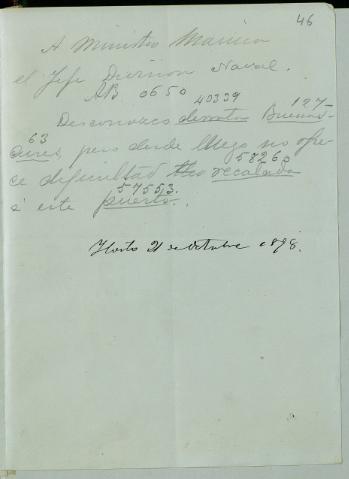 46
A Ministro Marina
el Jefe Division Naval.
AB 0650 40339 127-
Desconozco derrotas Buenos-
63
Aires, pero desde luego no ofre-
58260
ce dificultad recalada
57553.
á este puerto.
21 de Octubre 1898.